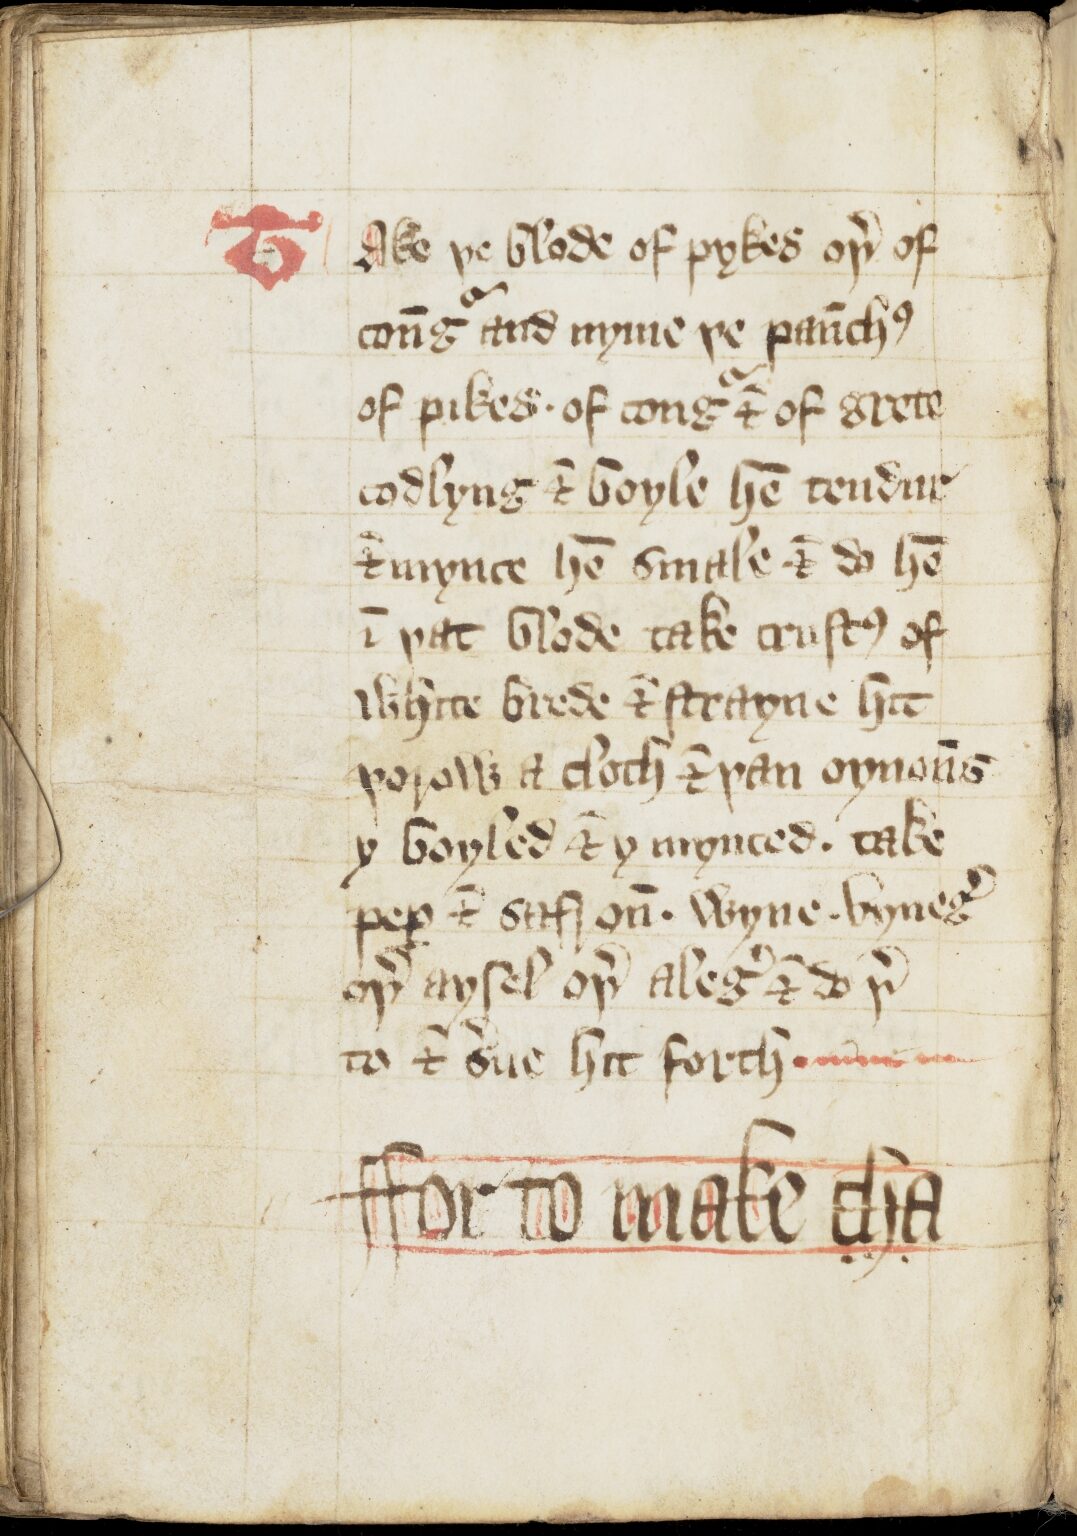 TAke þe blode of pykes oþ̉ of
con̄gᵃ and nyme þe pan̄chꝯ
of pikes · of congᵃ ⁊̄ of grete
codlyng ⁊̄ boyle hē tendur
⁊̄ mynce hē smale ⁊̄ do hē
ī þat blode take crustꝯ of
white brede ⁊̄ strayne hit
þorow a cloth ⁊̄ þan oynon̄s
y boyled ⁊̄ y mynced · take
peꝑ ⁊̄ saffron̄ · wyne · vyneg̉
oþ̉ aysel oþ̉ aleg̉ ⁊̄ do þ̉
to ⁊̄ s̉ue hit forth ·
ffor to make cha